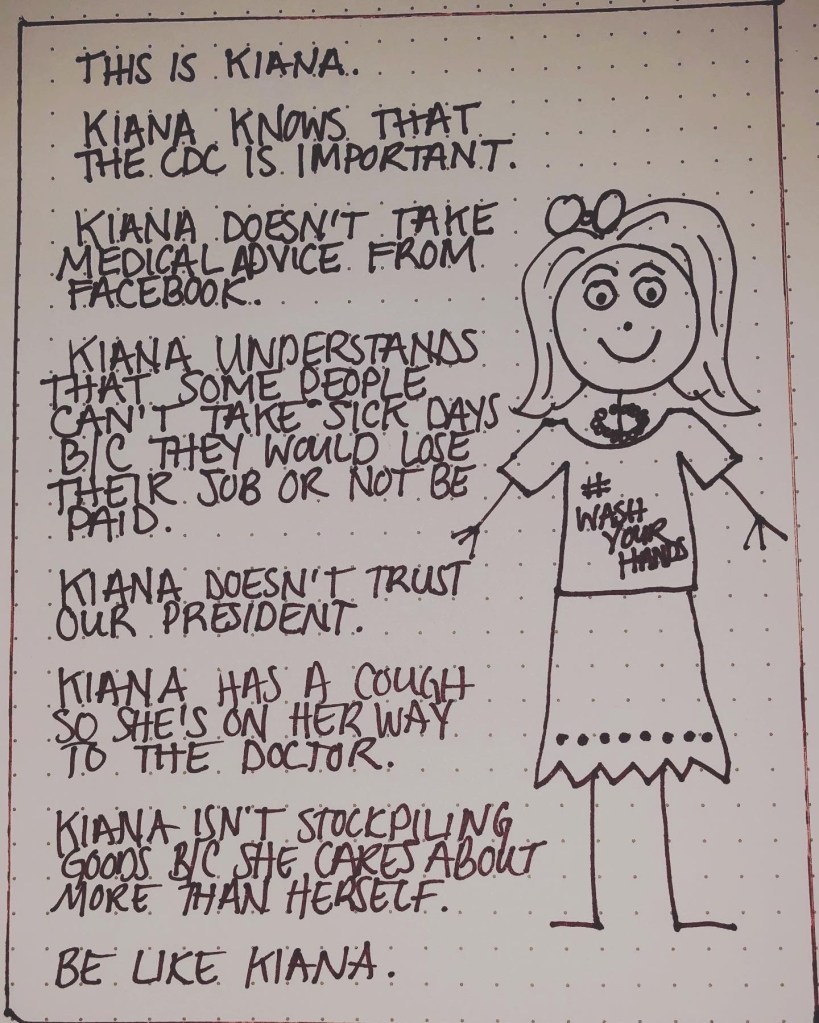 THIS IS KIANA.
KIANA KNOWS THAT
THE CDC IS IMPORTANT.
KIANA DOESN'T TAKE
MEDICAL ADVICE FROM
FACEBOOK.
KIANA UNDERSTANDS
THAT SOME PEOPLE
CAN'T TAKE SICK DAYS
B/C THEY WOULD LOSE
THEIR JOB OR NOT BE
PAID.
KIANA DOESN'T TRUST
OUR PRESIDENT.
KIANA HAS A COUGH
SO SHE'S ON HER WAY
TO THE DOCTOR.
KIANA ISN'T STOCKPILING
GOODS B/C SHE CARES ABOUT
MORE THAN HERSELF.
BE LIKE KIANA.
#
WASH
YOUR
HANDS